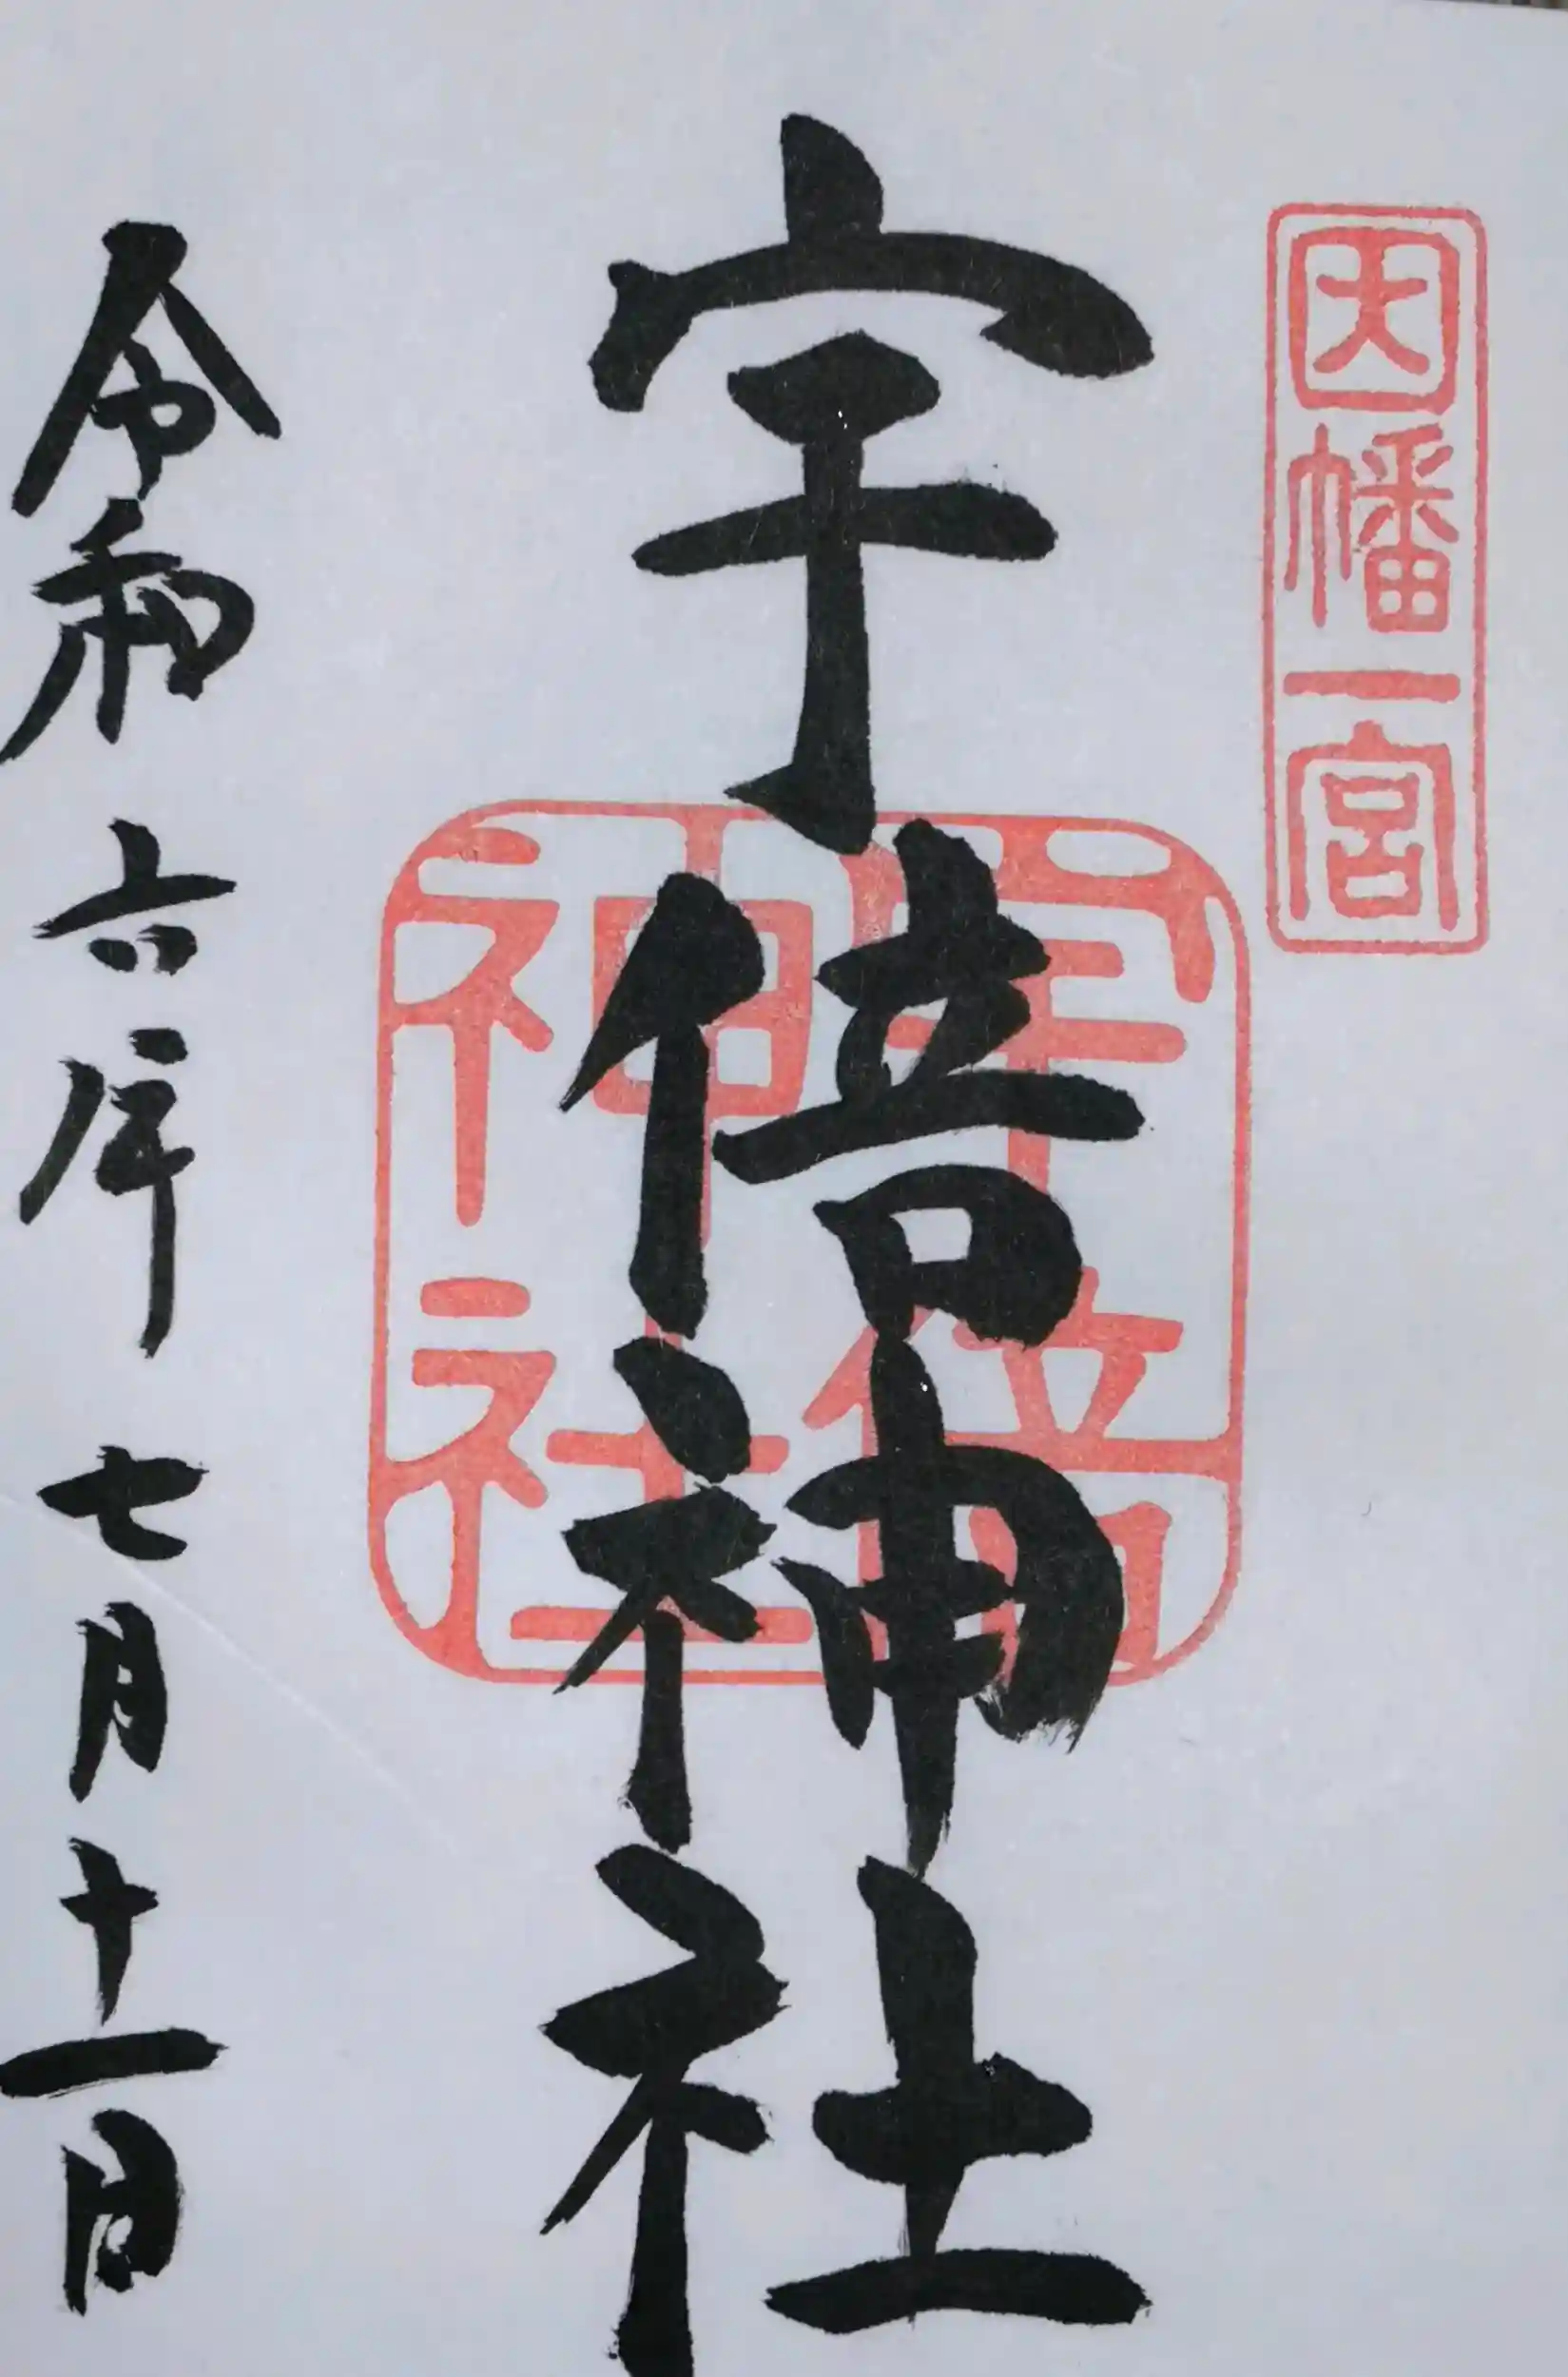 因幡一宮
宇倍神社
宇倍神社
令和六年七月十一日